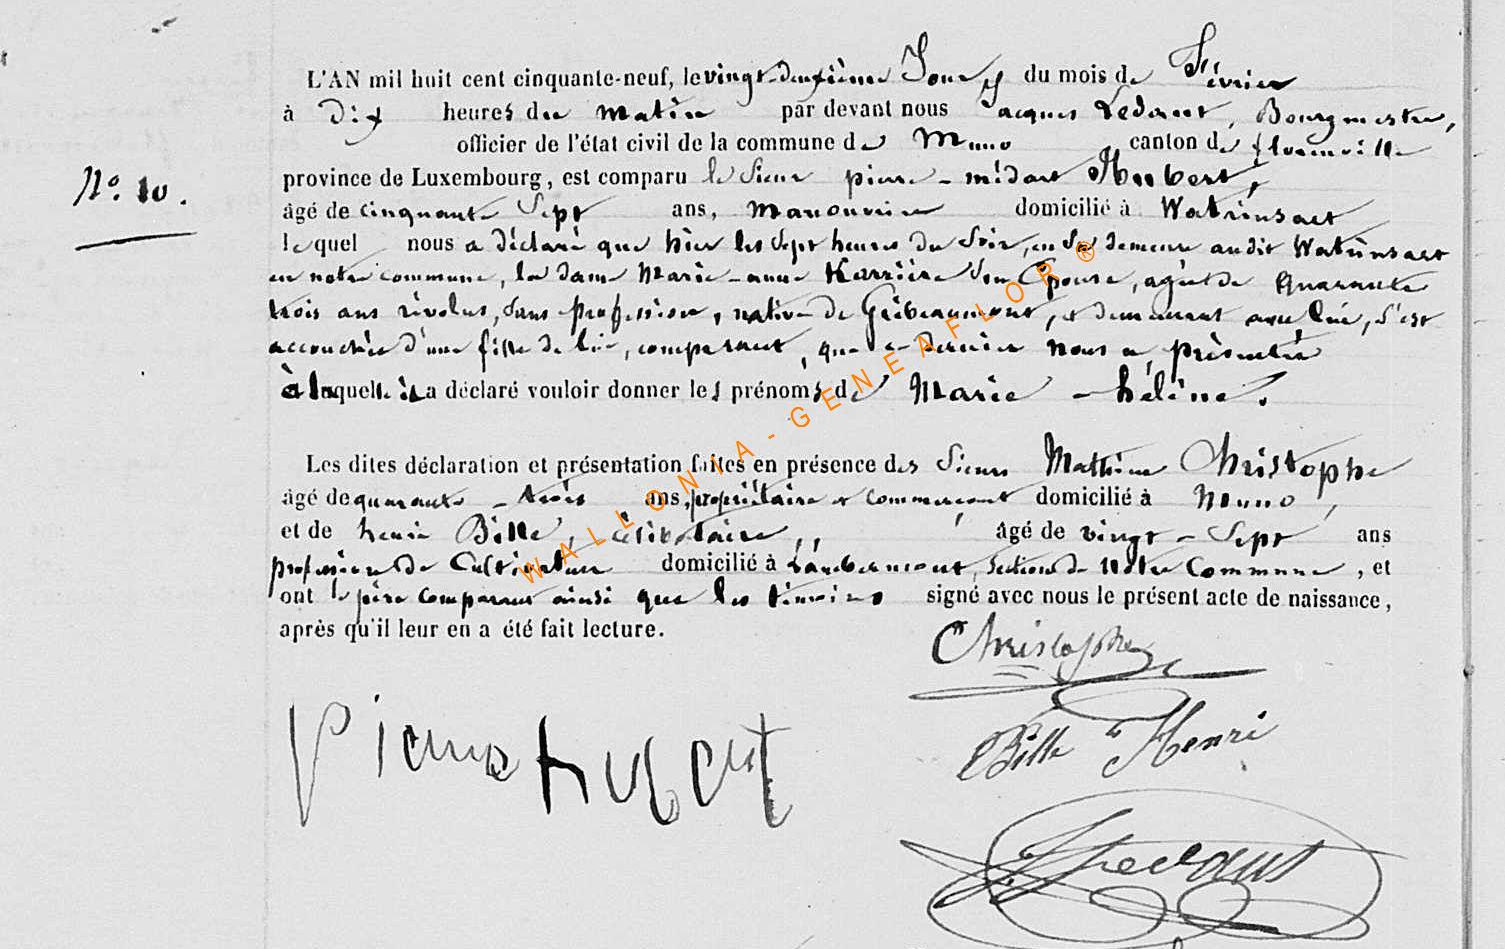 L'AN mil huit cent cinquante-neuf, le vingt-deuxième Jour du mois de Février
à Dix heures du matin par devant nous Jacques Ledant, Bourgmestre,
officier de l'état civil de la commune de Muno canton de florenville
N.o 10.
province de Luxembourg, est comparu le Sieur pierre-médart Hubert,
âgé de cinquante Sept ans, manouvrier domicilié à Watrinsart
lequel nous a déclaré que hier les Sept heures du Soir, en Sa demeure audit Watrinsart
en notre commune, la dame Marie-anne Karrière Son Epouse, agée de quarante
trois ans révolus, Sans profession, native de Gribeaumont, et demeurant avec lui, S'est
accouchée d'une fille de lui, comparant, que ce dernier nous a présentée
à laquelle il a déclaré vouloir donner les prénoms de Marie-hélène.
Les dites déclaration et présentation faites en présence des Sieurs Mathieu Christophe
âgé de quarante-trois ans, propriétaire et commerçant domicilié à Muno,
et de henri Bille, célibataire, âgé de vingt-Sept ans
profession de Cultivateur domicilié à Lambermont, Section de Notre Commune, et
ont le père comparant ainsi que les témoins signé avec nous le présent acte de naissance,
après qu'il leur en a été fait lecture.
Christophe
Pierre hubert
Bille Henri
JLedant
WALLONIA-GENEAFLOR®